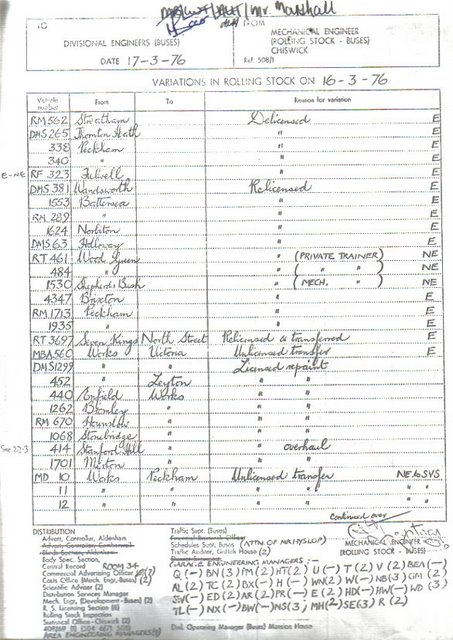 Mr. Marshall
TO
FROM
DIVISIONAL ENGINEERS (BUSES)
MECHANICAL ENGINEER
(ROLLING STOCK - BUSES)
CHISWICK
DATE 17-3-76
Ref. 508/1
VARIATIONS IN ROLLING STOCK ON 16-3-76
Vehicle number From To Reason for variation
RM 562 Streatham Delicensed E
DMS 265 Thornton Heath " E
338 Peckham " E
340 " " E
E-NE RF 323 Fulwell " E
DMS 381 Wandsworth Relicensed E
1553 Battersea " E
RM 289 " " E
1624 Norbiton " E
DMS 63 Holloway " E
RT 461 Wood Green " (PRIVATE TRAINER) NE
484 " " ( " " ) NE
1530 Shepherds Bush " (MECH. " ) NE
4347 Brixton " E
RM 1713 Peckham " E
1935 " " E
RT 3697 Seven Kings North Street Relicensed & transferred E
MBA 560 Works Victoria Unlicensed transfer E
DMS 1299 " " Licensed repaint
452 " Leyton " "
440 Enfield Works " "
1262 Bromley " " "
RM 670 Hounslow " " "
1068 Stonebridge " " "
See 22-3 414 Stamford Hill " " overhaul
1701 Merton " " "
MD 10 Works Peckham Unlicensed transfer NE to SVS
11 " " " " " "
12 " " " " " "
Continued over
DISTRIBUTION
Advert. Controller, Aldenham
Body Spec. Section,
Central Record ROOM 34
Commercial Advertising Officer
Costs Office (Mech. Engr. Buses) (2)
Scientific Adviser (2)
Distribution Services Manager
Mech. Engr. (Development - Buses)
R. S. Licensing Section (6)
Rolling Stock Inspector
Statistical Office - Chiswick (2)
AREA ENGINEERING MANAGERS
Traffic Supt. (Buses)
Schedules Supt. Buses (ATTN OF MR HYSLOP)
Traffic Auditor, Griffith House (2)
GARAGE ENGINEERING MANAGERS :-
MECHANICAL ENGINEER
(ROLLING STOCK - BUSES)
Q (-) BN (3) M (2) NT (2) U (-) T (2) V (2) BEA (-)
AL (2) TC (2) BX (-) H (-) WN (2) W (-) NB (3) GM (2)
SW (-) ED (2) AR (2) PR (-) E (2) HD (-) HW (-) WD (3)
TL (-) NX (-) BW (-) NS (3) MH (2) SE (3) R (2)
Dist. Operating Manager (Buses) Mansion House